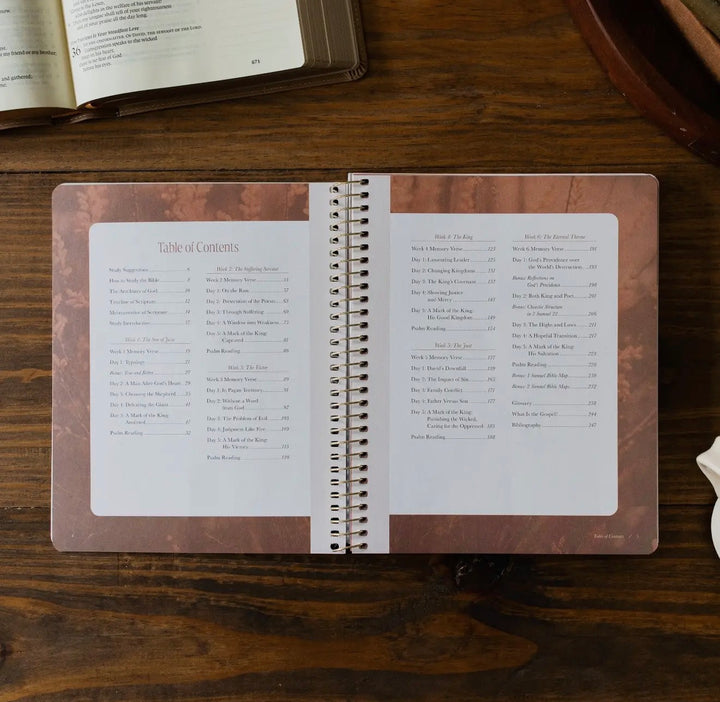 my friend or my brother;
and gathered;
delights in the welfare of his servant!"
tongue shall tell of your righteousness
of your praise all the day long.
Is Your Steadfast Love
36 TO THE CHOIRMASTER. OF DAVID, THE SERVANT OF THE LORD.
Transgression speaks to the wicked
in his heart;
is no fear of God
before his eyes.
671
Table of Contents
Study Suggestions 6
How to Study the Bible 8
The Attributes of God 10
Timeline of Scripture 12
Metanarrative of Scripture 14
Study Introduction 17
Week 1: The Son of Jesse
Week 1 Memory Verse 19
Day 1: Typology 21
Bonus: You and Kettes 27
Day 2: A Man After God's Heart 29
Day 3: Choosing the Shepherd 35
Day 4: Defeating the Giant 41
Day 5: A Mark of the King:
Anointed 47
Psalm Reading 52
Week 2: The Suffering Servant
Week 2 Memory Verse 55
Day 1: On the Run 57
Day 2: Desecration of the Priests 63
Day 3: Enough Suffering 69
Day 4: A Window into Weakness 75
Day 5: A Mark of the King:
Captured 81
Psalm Reading 86
Week 3: The Victor
Week 3 Memory Verse 89
Day 1: In Pagan Territory 91
Day 2: Without a Word
from God 97
Day 3: The Problem of Evil 103
Day 4: Judgment Like Fire 109
Day 5: A Mark of the King:
His Victory 115
Psalm Reading 120
Week 4: The King
Week 4 Memory Verse 123
Day 1: Lamenting Leader 125
Day 2: Changing Kingdoms 131
Day 3: The King's Covenant 137
Day 4: Showing Justice
and Mercy 143
Day 5: A Mark of the King:
His Good Kingdom 149
Psalm Reading 154
Week 5: The Just
Week 5 Memory Verse 157
Day 1: David's Downfall 159
Day 2: The Impact of Sin 165
Day 3: Family Conflict 171
Day 4: Father Versus Son 177
Day 5: A Mark of the King:
Punishing the Wicked,
Caring for the Oppressed 183
Psalm Reading 188
Week 6: The Eternal Throne
Week 6 Memory Verse 191
Day 1: God's Providence over
the World's Destruction 193
Bonus: Reflections on
God's Providence 198
Day 2: Both King and Poet 201
Bonus: Chiastic Structure
in 2 Samuel 22 206
Day 3: The Highs and Lows 211
Day 4: A Hopeful Transition 217
Day 5: A Mark of the King:
His Salvation 223
Psalm Reading 228
Bonus: 1 Samuel Bible Maps 230
Bonus: 2 Samuel Bible Maps 232
Glossary 238
What Is the Gospel? 244
Bibliography 247
Table of Contents / 5